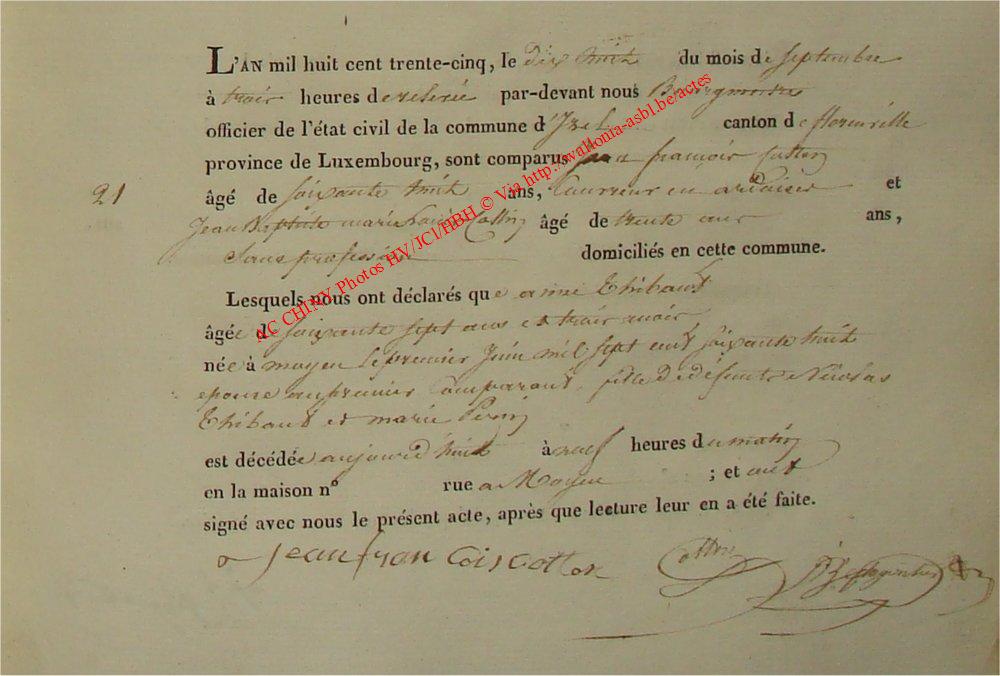 L'AN mil huit cent trente-cinq, le dix huit du mois de septembre
à trois heures de relevée par-devant nous Bourgmestre
officier de l'état civil de la commune d'Izel canton de florenville
province de Luxembourg, sont comparus jean françois Cotton
21
âgé de soixante huit ans, Couvreur en ardoises et
Jean Baptiste marie Cotton âgé de trente ans,
Sans profession domiciliés en cette commune.
Lesquels nous ont déclarés que anne Thibaut
âgée de soixante sept ans et trois mois
née à moyen le premier Juin mil sept cent soixante huit
epouse au premier Comparant, fille de défunts Nicolas
Thibaut et marie
est décédée aujourd'huit à neuf heures du matin
en la maison n° rue a Moyen ; et ont
signé avec nous le présent acte, après que lecture leur en a été faite.
Jean fran Cois Cotton Cotton
AC CHINY Photos HV/JCl/HBH © Via http://wallonia-asbl.be/actes